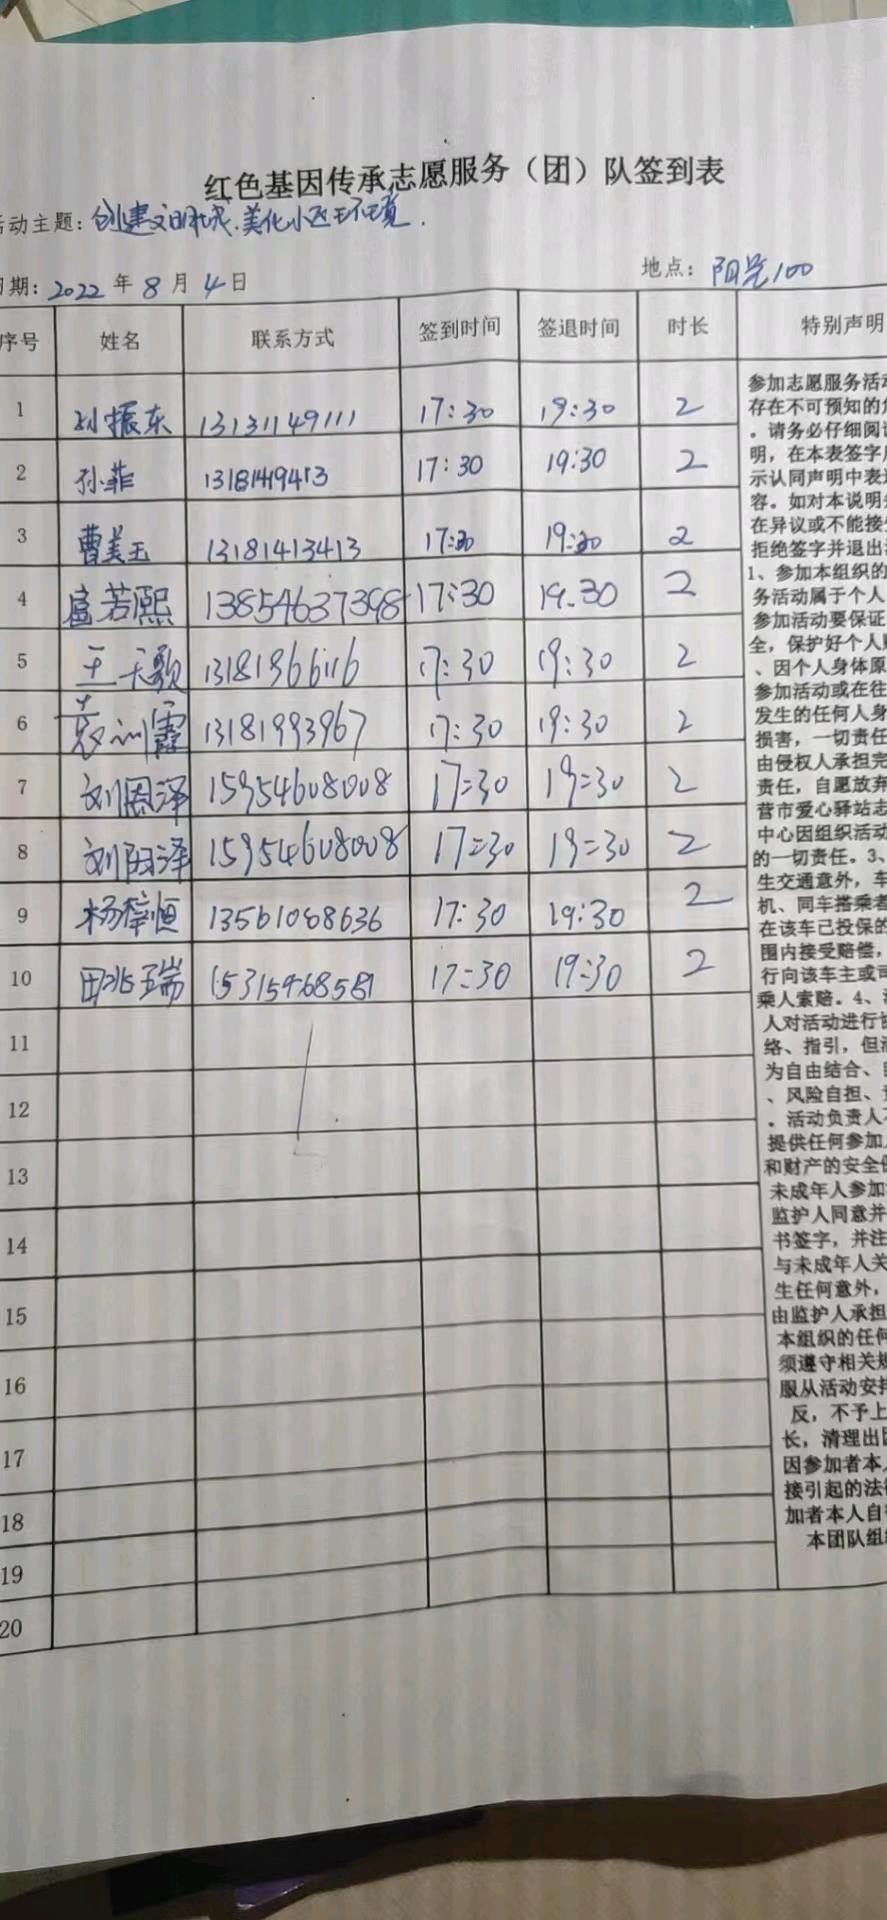 红色基因传承志愿服务（团）队签到表
动主题：创建文明城.美化小区环境.
期：2022年8月4日 地点：阳光100
序号 姓名 联系方式 签到时间 签退时间 时长 特别声明
1 孙振东 13131149111 17:30 19:30 2
2 孙菲 1318149413 17:30 19:30 2
3 曹美玉 13181413413 17:30 19:30 2
4 若熙 13854637398 17:30 19.30 2
5 王天歌 13181966116 17:30 19:30 2
6 13181993967 17:30 19:30 2
7 刘恩泽 15954608008 17=30 19=30 2
8 刘阳泽 15954608008 17=30 19=30 2
9 杨梓恒 13561088636 17:30 19:30 2
10 田兆瑞 15315968581 17=30 19:30 2
11
12
13
14
15
16
17
18
19
20
参加志愿服务活
存在不可预知的
。请务必仔细阅
明，在本表签字
示认同声明中表
容。如对本说明
在异议或不能接
拒绝签字并退出
1、参加本组织的
务活动属于个人
参加活动要保证
全，保护好个人
、因个人身体原
参加活动或在往
发生的任何人身
损害，一切责任
由侵权人承担完
责任，自愿放弃
营市爱心驿站志
中心因组织活动
的一切责任。3、
生交通意外，车
机、同车搭乘者
在该车已投保的
围内接受赔偿，
行向该车主或司
乘人索赔。4、
人对活动进行
络、指引，但
为自由结合、
、风险自担、
。活动负责人
提供任何参加
和财产的安全
未成年人参加
监护人同意并
书签字，并注
与未成年人关
生任何意外，
由监护人承担
本组织的任何
须遵守相关规
服从活动安排
反，不予上
长，清理出
因参加者本人
接引起的法
加者本人自
本团队组